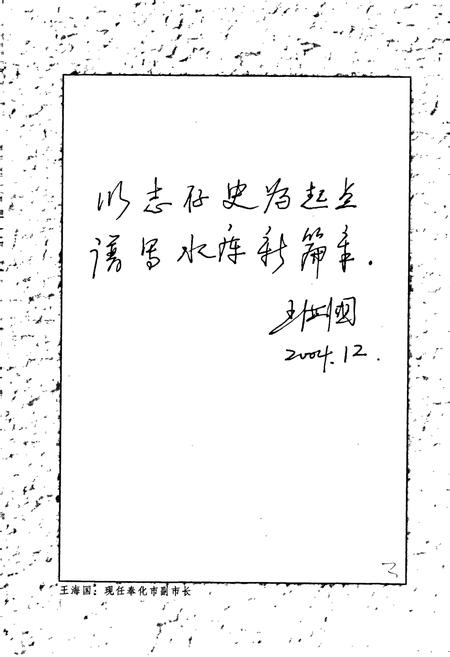 以志存史为起点
谱写水库新篇章.
王海国
2004.12.
3
王海国：现任奉化市副市长